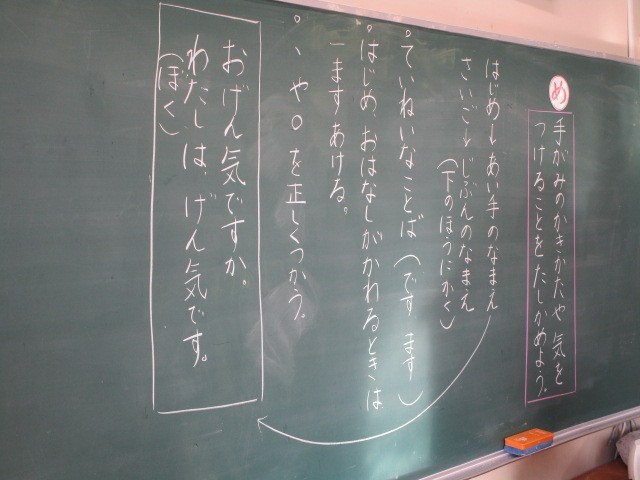 め
手がみのかきかたや気を
つけることをたしかめよう。
はじめ→あい手のなまえ
さいご→じぶんのなまえ
(下のほうにかく)
。ていねいなことば(です ます)
。はじめ、おはなしがかわるときは
一ますあける。
。、や〇を正しくつかう。
おげん気ですか。
わたしは、げん気です。
(ぼく)